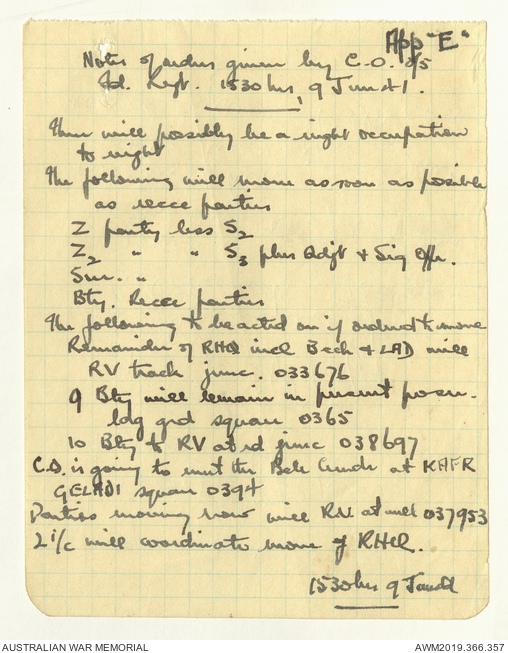 App "E"
Notes of orders given by C.O. 2/5
Fd. Regt. 1530 hrs, 9 Jun 41.
There will possibly be a night occupation
to night
The following will move as soon as possible
as recce parties
Z party less S2
Z2 " " S3 plus Adjt & Sig Offr.
Sur. "
Bty. Recce parties
The following to be acted on if ordered to move
Remainder of RHQ incl B ech & LAD will
RV track junc. 033676
9 Bty will remain in present posn.
ldg grd square 0365
10 Bty to RV at rd junc 038697
C.O. is going to meet the Bde Comdr at KAFR
GELADI square 0394
Parties moving now will RV at well 037953
2 i/c will coordinate move of RHQ.
1530 hrs 9 Jun 41
AUSTRALIAN WAR MEMORIAL
AWM2019.366.357